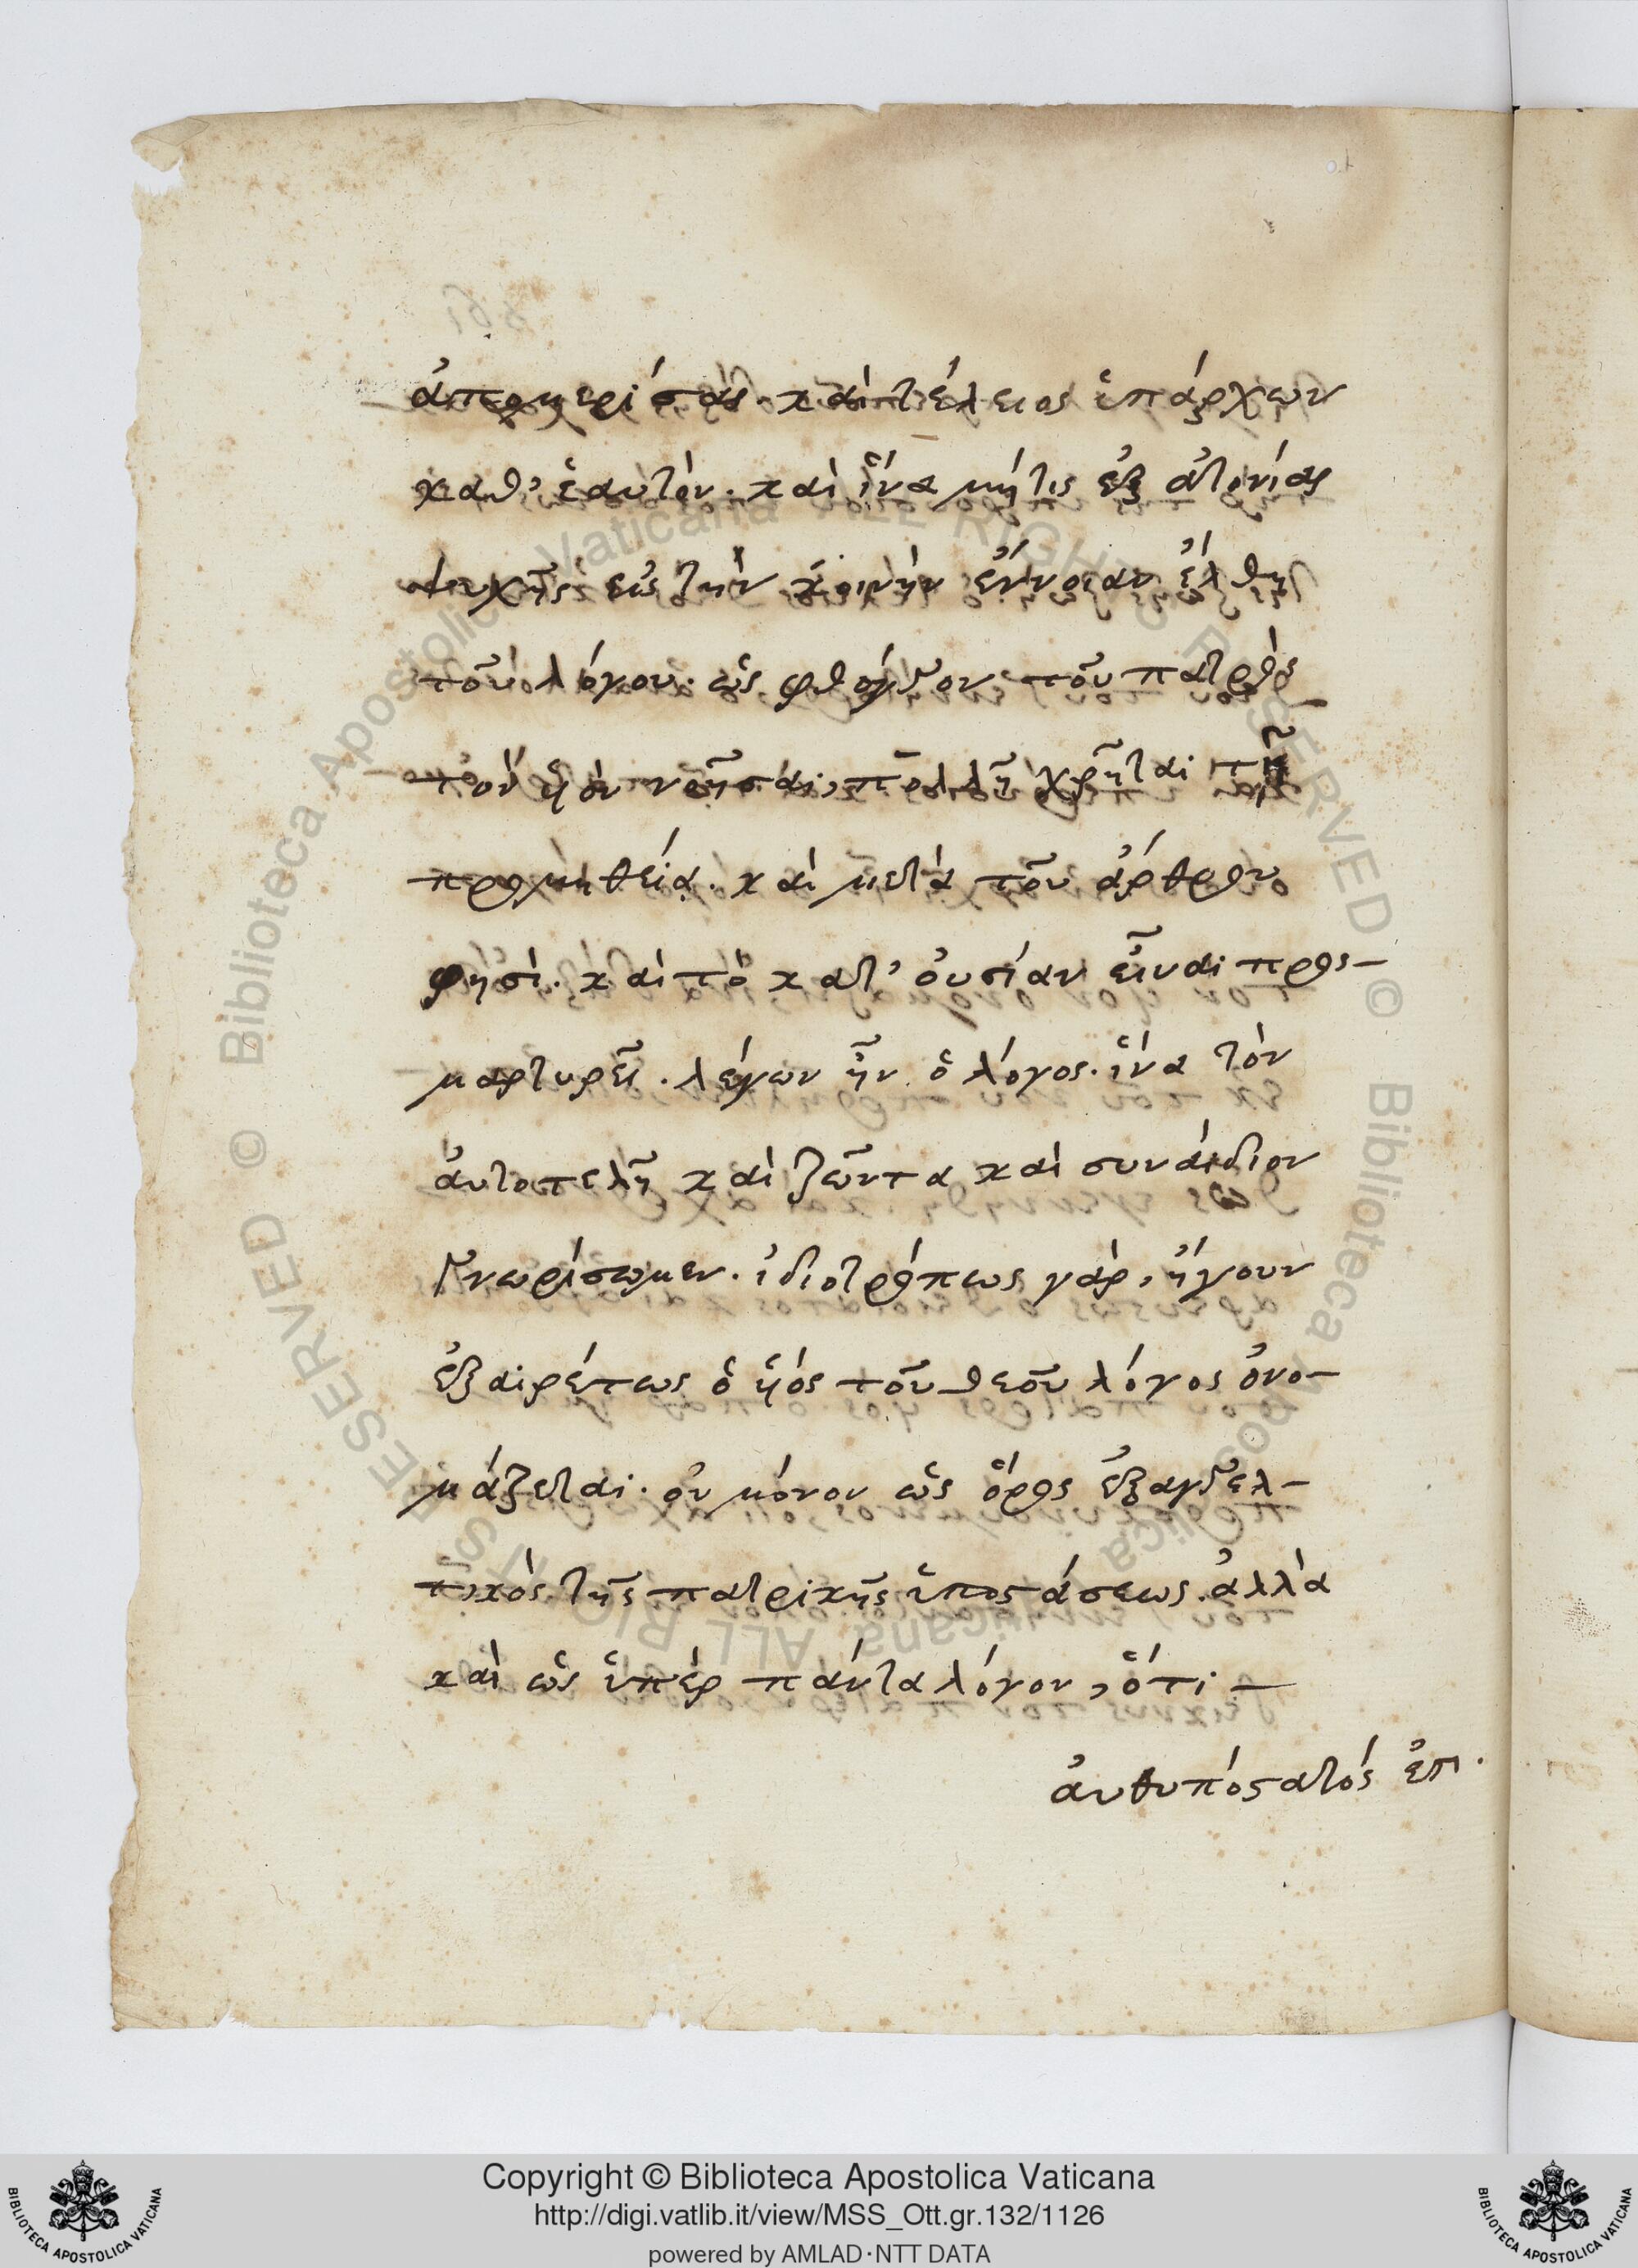 ἀπομερίσας. καὶ τέλειος ὑπάρχων
καθ' ἑαυτόν. καὶ ἵνα μήτις ἐξ ἀτονίας
ψυχῆς εἰς τὴν κοινὴν ἔννοιαν ἔλθῃ
τοῦ λόγου. ὡς φθόγγον τοῦ πατρὸς
τὸν ὑὸν νοῆσαι, πολλῇ χρῆται τῇ
προμηθείᾳ. καὶ μετὰ τοῦ ἄρθρου
φησί. καὶ τὸ κατ' οὐσίαν εἶναι προσ-
μαρτυρεῖ. λέγων ἦν ὁ λόγος. ἵνα τὸν
αὐτοτελῆ καὶ ζῶντα καὶ συναΐδιον
Γνωρίσωμεν. ἰδιοτρόπως γὰρ, ἤγουν
ἐξαιρέτως ὁ ὑιός τοῦ θεοῦ λόγος ὀνο-
μάζεται. οὐ μόνον ὡς ὅρος ἐξαγγελ-
τικὸς τῆς πατρικῆς ὑποστάσεως. ἀλλὰ
καὶ ὡς ὑπὲρ πάντα λόγον, ὅτι —
ἀνθυπόστατός ἐπι.
Copyright © Biblioteca Apostolica Vaticana
http://digi.vatlib.it/view/MSS_Ott.gr.132/1126
powered by AMLAD·NTT DATA
BIBLIOTECA APOSTOLICA VATICANA
BIBLIOTECA APOSTOLICA VATICANA